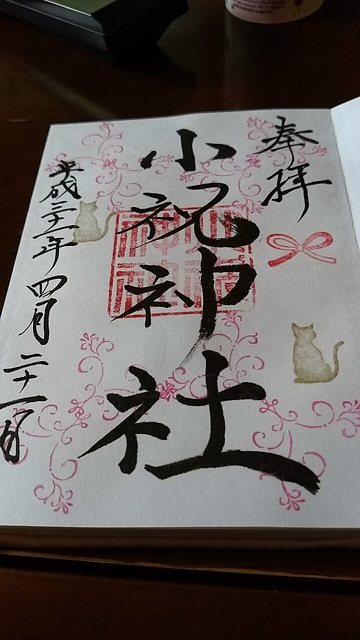 奉拝
小祝神社
平成三十一年四月二十一日